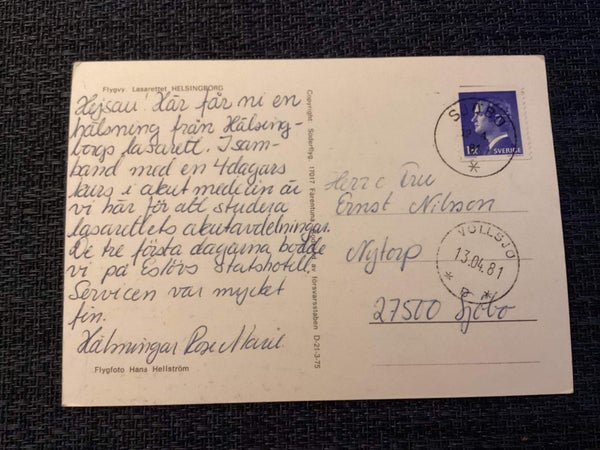 Flygvy. Lasarettet HELSINGBORG
Hejsan! Här får ni en
hälsning från Hälsing-
borgs lasarett. I sam-
band med en 4dagars
kurs i akut medicin är
vi här för att studera
lasarettets akutavdelningar.
De tre första dagarna bodde
vi på Eslövs statshotell,
Servicen var mycket
fin.
Hälsningar Rose Marie
Flygfoto Hans Hellström
Copyright. Söderflyg, 17017 Färentuna. av försvarsstaben D-21-3-75
SVERIGE
SJÖBO
Herr o Fru
Ernst Nilsson
Nytorp
27500 Sjöbo
VOLLSJÖ
13.04.81